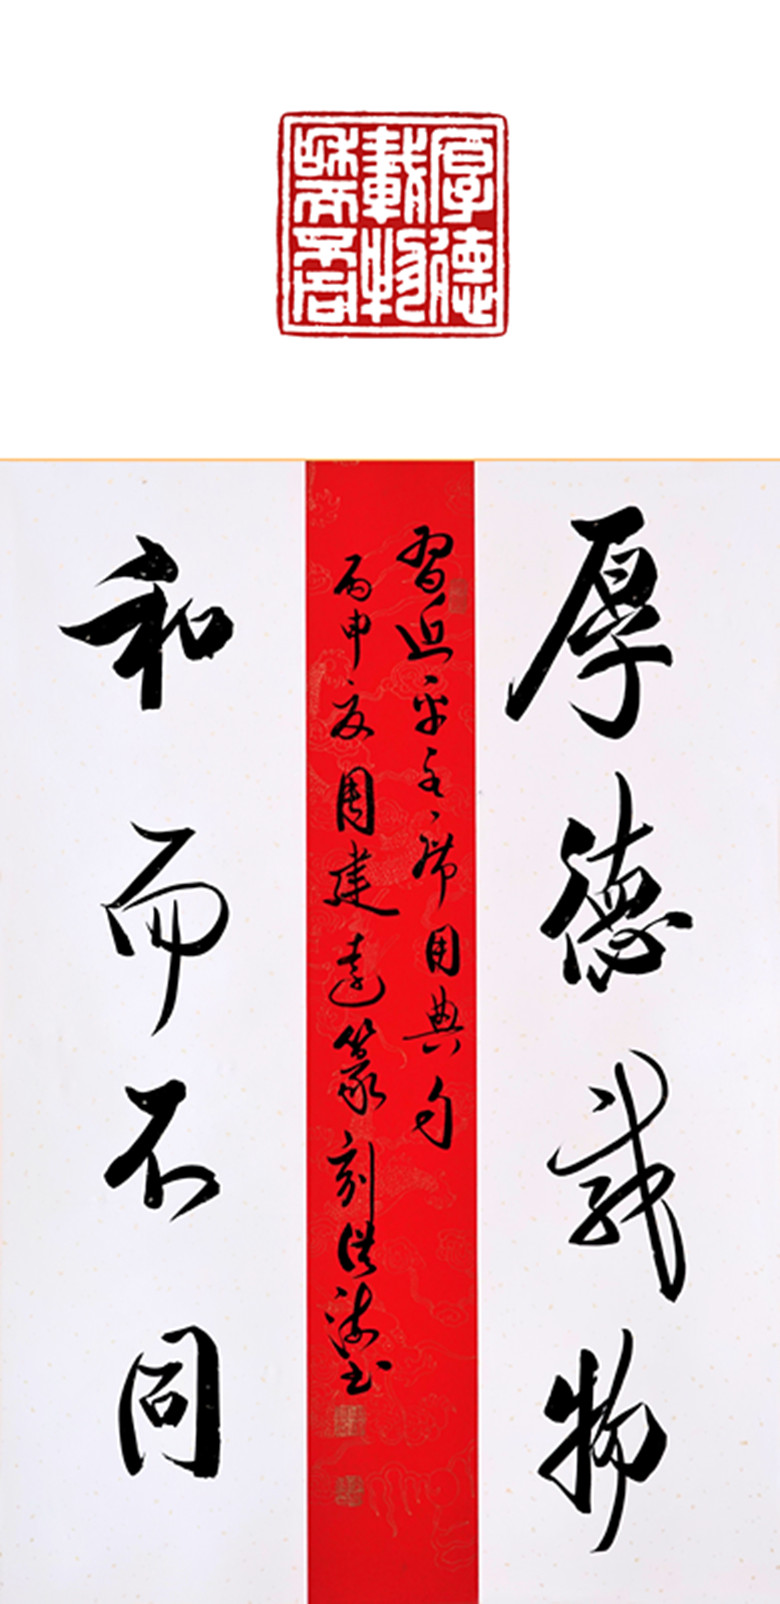 厚德
載物
和而不同
厚德载物
習近平主席用典句
丙申夏周建远篆刻洪涛书
和而不同